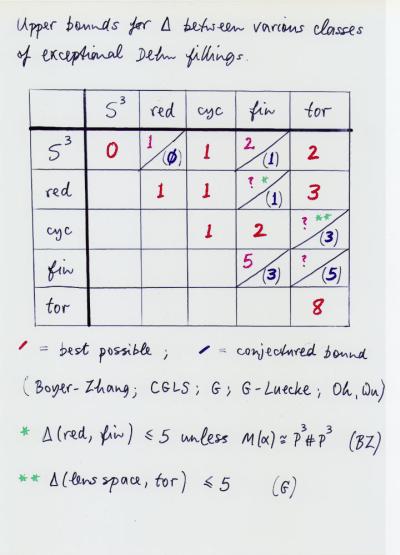 Upper bounds for Δ between various classes
of exceptional Dehn fillings.
S³ red cyc fin tor
S³ 0 1 (∅) 1 2 (1) 2
red 1 1 ? * (1) 3
cyc 1 2 ? ** (3)
fin 5 (3) ? (5)
tor 8
/ = best possible ; / = conjectured bound
(Boyer-Zhang; CGLS; G; G-Luecke; Oh, Wu)
* Δ(red, fin) ≤ 5 unless M(α) ≅ P³ # P³ (BZ)
** Δ(lens space, tor) ≤ 5 (G)